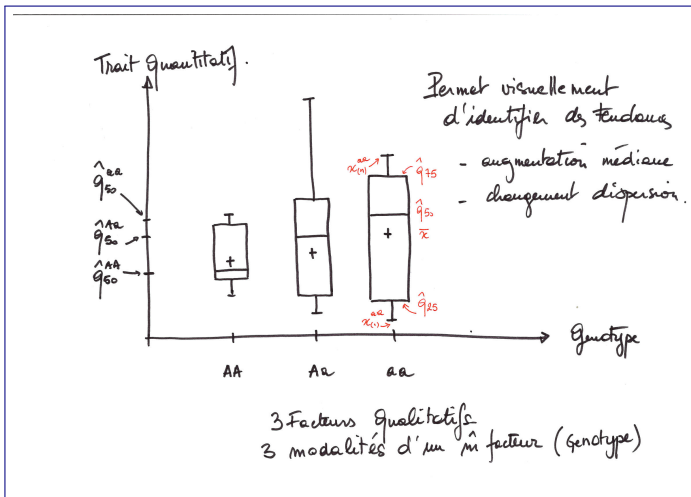 Trait Quantitatif.
Permet visuellement
d'identifier des tendances
- augmentation médiane
- changement dispersion.
x₍ₙ₎^aa
q̂₇₅
q̂₅₀
x̄
q̂₂₅
x₍₁₎^aa
q̂₅₀^aa
q̂₅₀^Aa
q̂₅₀^AA
Genotype
AA Aa aa
3 Facteurs Qualitatifs
3 modalités d'un m̂ facteur (Genotype)